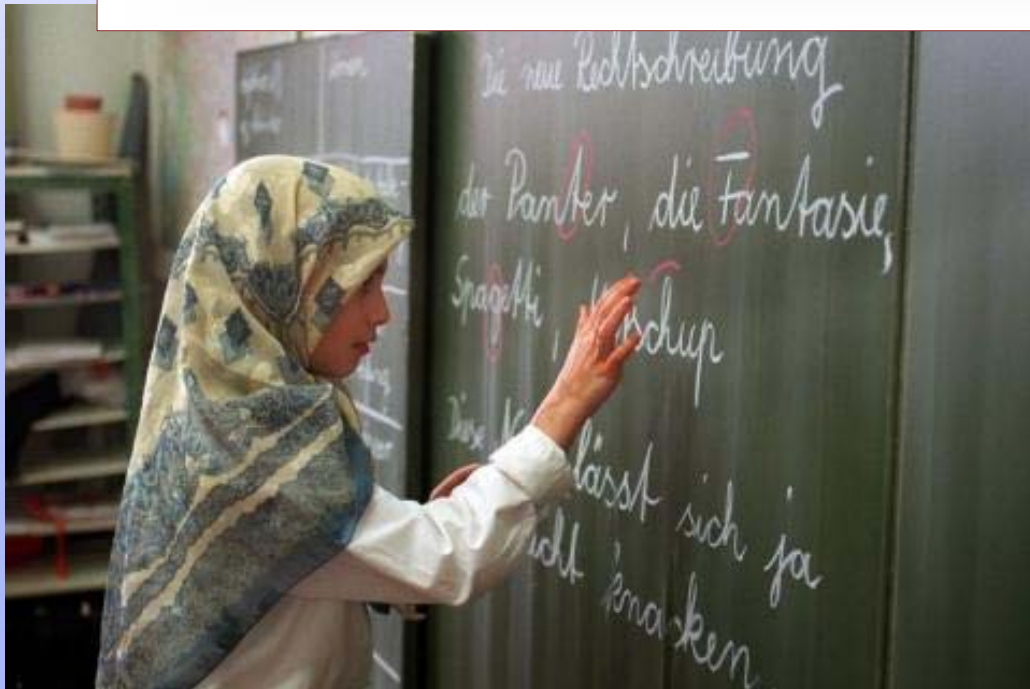 Die neue Rechtschreibung
der Panter, die Fantasie,
Spagetti, schup
Diese lässt sich ja
knacken